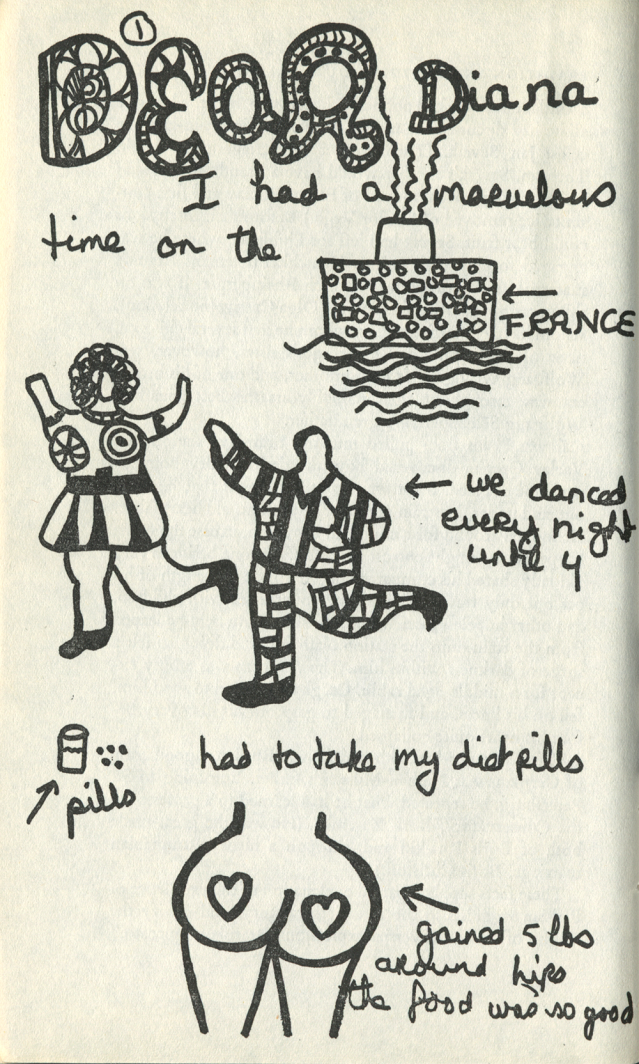 ①
DEAR Diana
I had a marvelous
time on the
FRANCE
we danced
every night
until 4
had to take my diet pills
pills
gained 5 lbs
around hips
the food was so good